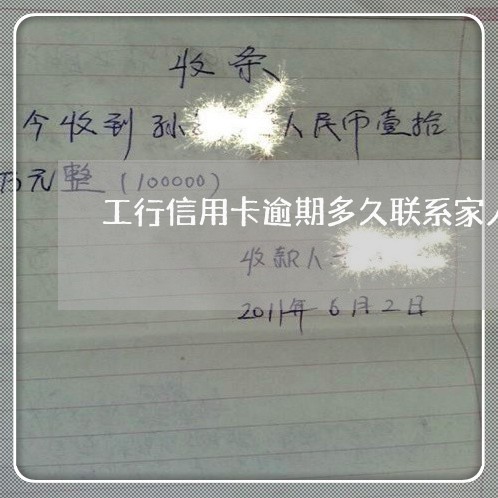 收条
今收到孙 人民币壹拾
万元整(100000)
工行信用卡逾期多久联系家
收款人
2011年6月2日